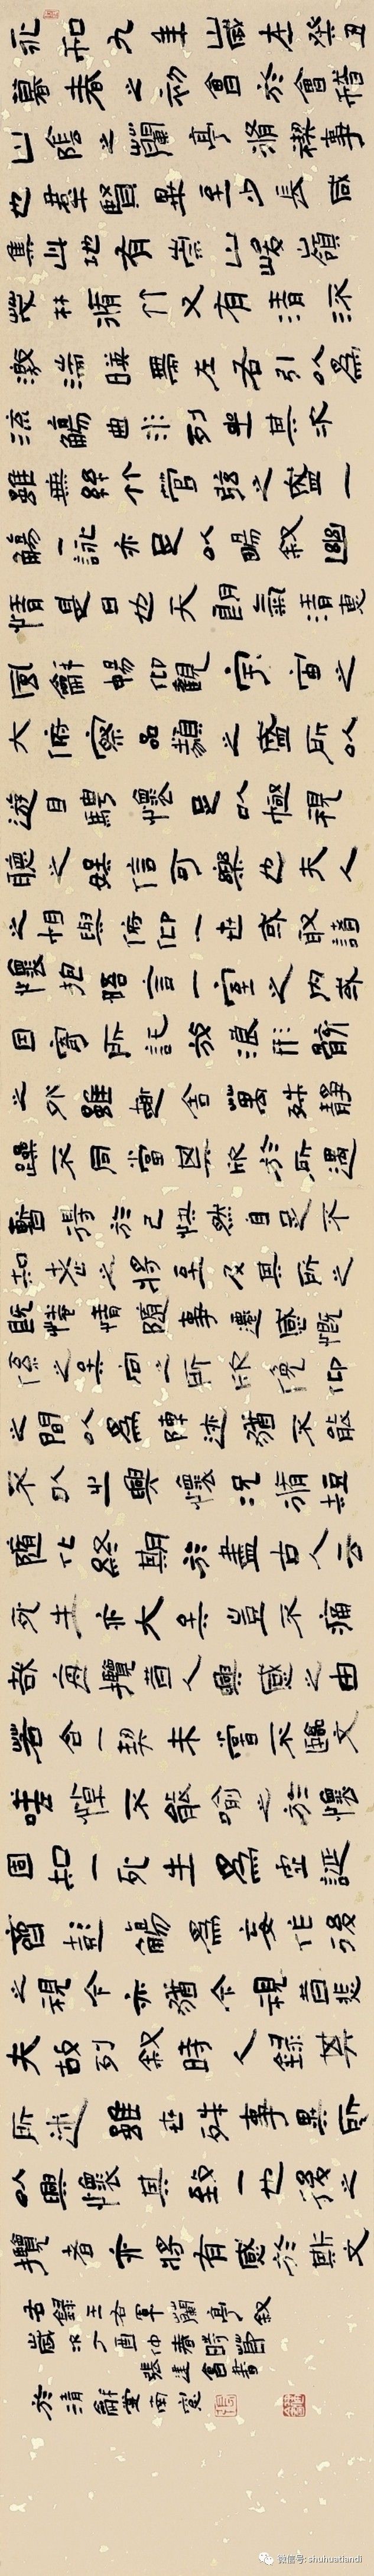 永和九年歲在癸丑
暮春之初會於會稽
山陰之蘭亭脩禊事
也羣賢畢至少長咸
集此地有崇山峻嶺
茂林脩竹又有清流
激湍暎帶左右引以為
流觴曲水列坐其次
雖無絲竹管弦之盛一
觴一詠亦足以暢敘幽
情是日也天朗氣清惠
風龢暢仰觀宇宙之
大俯察品類之盛所以
遊目騁懷足以極視
聽之娛信可樂也夫人
之相與俯仰一世或取諸
懷抱悟言一室之內或
因寄所託放浪形骸
之外雖趣舍萬殊靜
躁不同當其欣於所遇
暫得於己快然自足不
知老之將至及其所之
既惓情隨事遷感慨
係之矣向之所欣俛仰
之間以為陳迹猶不能
不以之興懷況脩短
隨化終期於盡古人云
死生亦大矣豈不痛
哉每攬昔人興感之由
若合一契未嘗不臨文
嗟悼不能喻之於懷
固知一死生為虛誕
齊彭殤為妄作後
之視今亦猶今視昔悲
夫故列敘時人錄其
所述雖世殊事異所
以興懷其致一也後之
攬者亦將有感於斯文
右錄王右軍蘭亭敘
歲次丁酉仲春時節
張建會書
於清龢堂南窗
微信号: shuhuatiandi